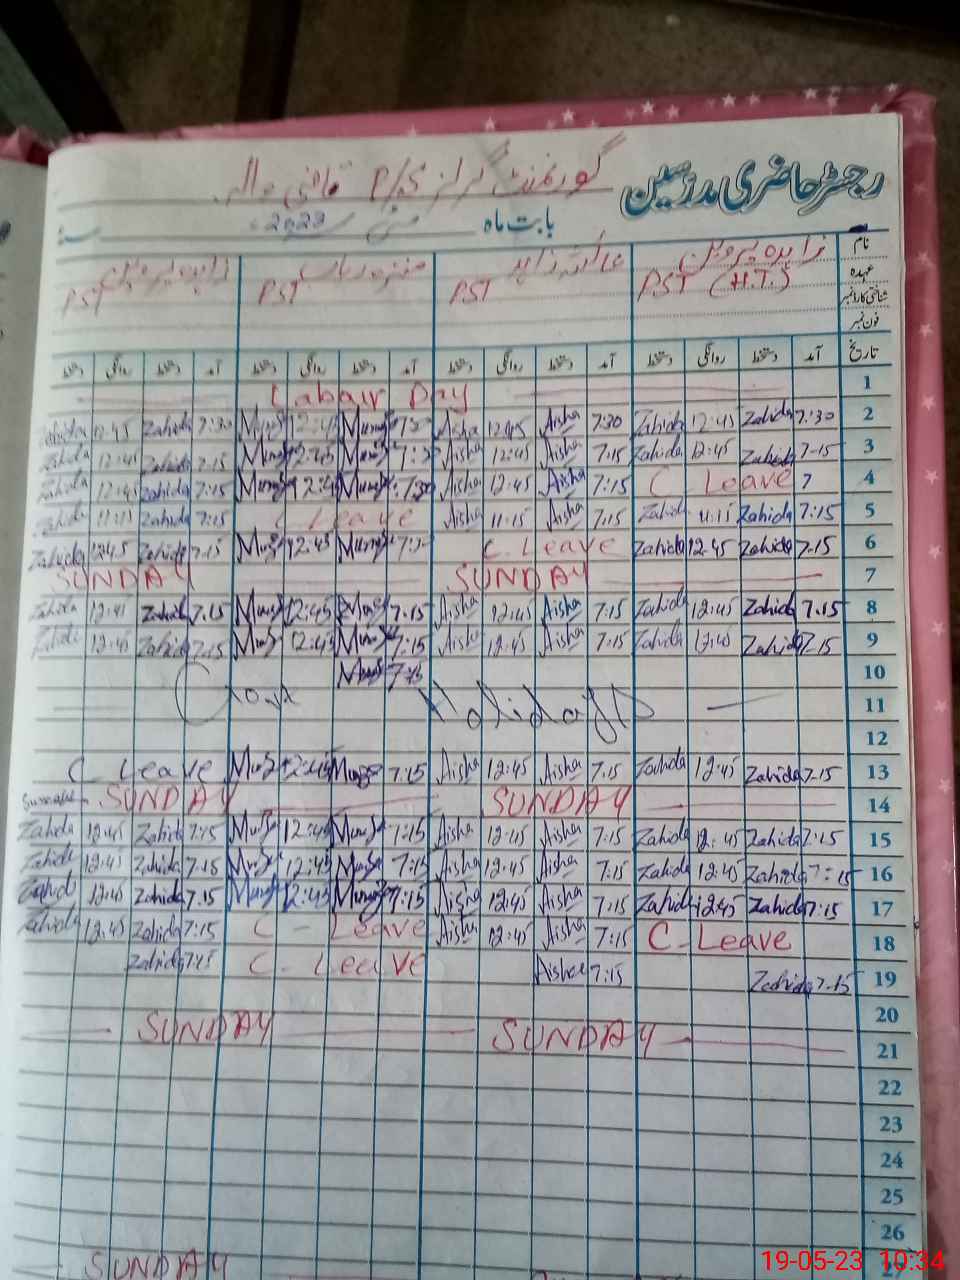 رجسٹر حاضری مدرسین گورنمنٹ گرلز P/S قاضی والہ
بابت ماہ مئی 2023 سنہ
نام زاہدہ پروین عائشہ زاہد زاہدہ پروین
عہدہ PST (H.T.) PST PST PST
شناختی کارڈ نمبر
فون نمبر
تاریخ آمد دستخط روانگی دستخط آمد دستخط روانگی دستخط آمد دستخط روانگی دستخط آمد دستخط روانگی دستخط
Labair Day 1
Zahida 12:45 Zahida 7:30 12:45 Aisha 12:45 Aisha 7:30 Zahida 12:45 Zahida 7:30 2
Zahida 12:45 Zahida 7:15 12:45 Aisha 12:45 Aisha 7:15 Zahida 12:45 Zahida 7-15 3
Zahida 12:45 Zahida 7:15 Aisha 12:45 Aisha 7:15 C Leave 7 4
Zahida 11:15 Zahida 7:15 C Leave Aisha 11:15 Aisha 7:15 Zahida 11:15 Zahida 7:15 5
Zahida 12:45 Zahida 7.15 12:45 C. Leave Zahida 12.45 Zahida 7.15 6
SUNDAY SUNDAY 7
Zahida 12:45 Zahida 7.15 12:45 7.15 Aisha 12:45 Aisha 7:15 Zahida 12:45 Zahida 7.15 8
Zahida 12:45 Zahida 7.15 12:45 7:15 Aisha 12:45 Aisha 7:15 Zahida 12:45 Zahida 7-15 9
7:15 10
Holiday 11
12
C Leave 12:45 7:15 Aisha 12:45 Aisha 7.15 Zahida 12:45 Zahida 7.15 13
SUNDAY SUNDAY 14
Zahida 12:45 Zahida 7:15 12:45 7:15 Aisha 12:45 Aisha 7:15 Zahida 12:45 Zahida 7:15 15
Zahida 12:45 Zahida 7.15 12:45 7:15 Aisha 12:45 Aisha 7:15 Zahida 12:45 Zahida 7:15 16
Zahida 12:45 Zahida 7.15 12:45 7:15 Aisha 12:45 Aisha 7:15 Zahida 12:45 Zahida 7:15 17
Zahida 12:45 Zahida 7:15 C - Leave Aisha 12:45 Aisha 7:15 C - Leave 18
Zahida 7:15 C - Leave Aisha 7:15 Zahida 7.15 19
20
SUNDAY SUNDAY 21
22
23
24
25
26
SUNDAY
19-05-23 10:34